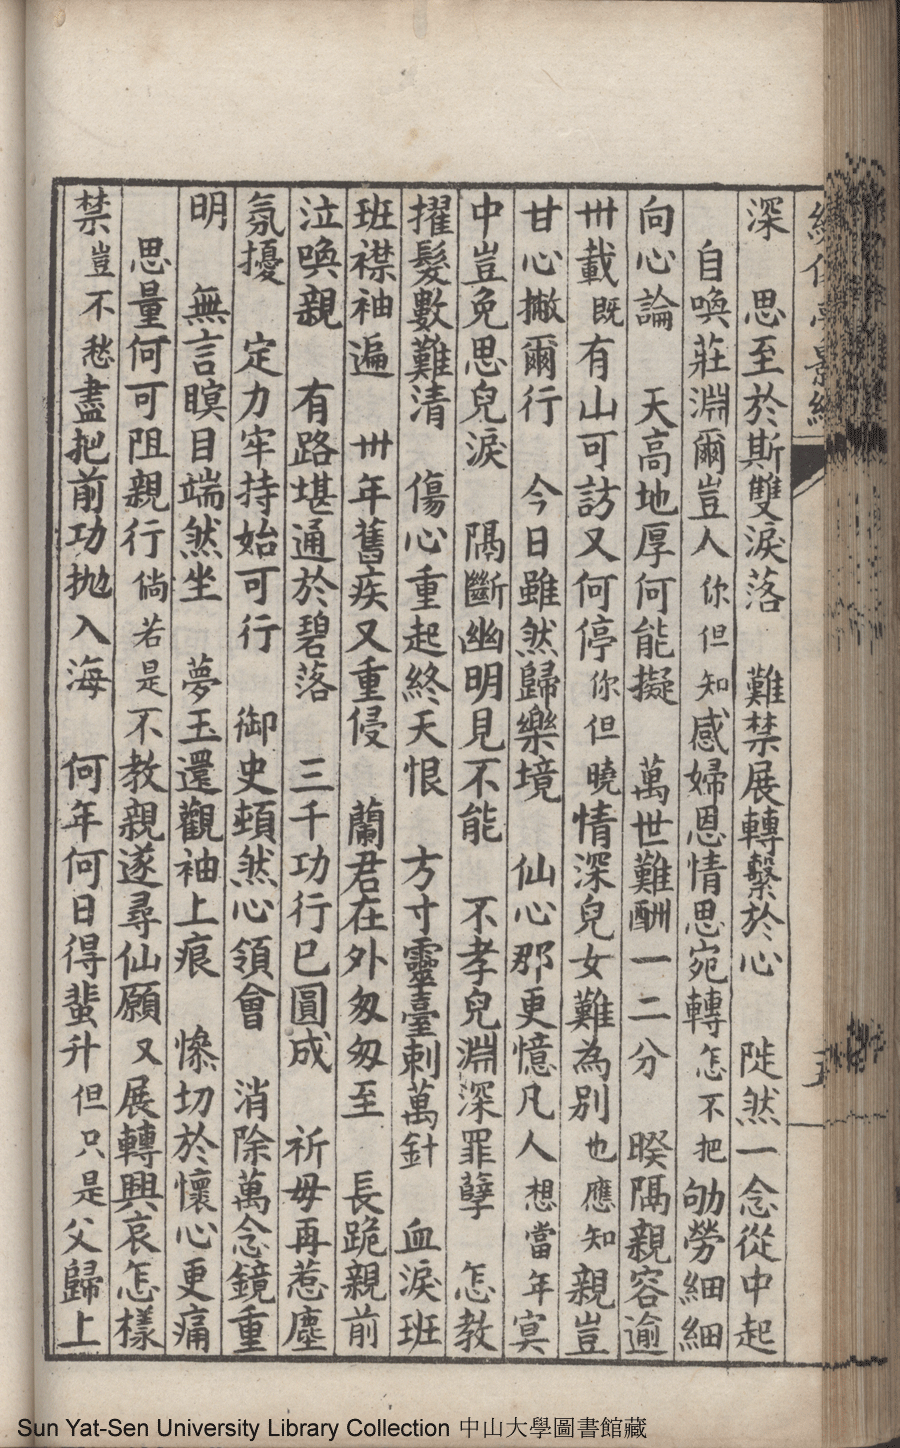 深　思至於斯雙淚落　難禁展轉繫於心　陡然一念從中起
自喚莊淵爾豈人你但知感婦恩情思宛轉怎不把劬勞細細
向心論　天高地厚何能擬　萬世難酬一二分　暌隔親容逾
卅載既有山可訪又何停你但曉情深兒女難為別也應知親豈
甘心撇爾行　今日雖然歸樂境　仙心那更憶凡人想當年㝠
中豈免思兒淚　隔斷幽明見不能　不孝兒淵深罪孽　怎教
擢髮數難清　傷心重起終天恨　方寸靈臺刺萬針　血淚班
班襟袖遍　卅年舊疾又重侵　蘭君在外匆匆至　長跪親前
泣喚親　有路堪通於碧落　三千功行已圓成　祈毋再惹塵
氛擾　定力牢持始可行　御史頓然心領會　消除萬念鏡重
明　無言瞑目端然坐　夢玉還觀袖上痕　慘切於懷心更痛
思量何可阻親行倘若是不教親遂尋仙願又展轉興哀怎樣
禁豈不愁盡把前功抛入海　何年何日得蜚升但只是父歸上
Sun Yat-Sen University Library Collection 中山大學圖書館藏